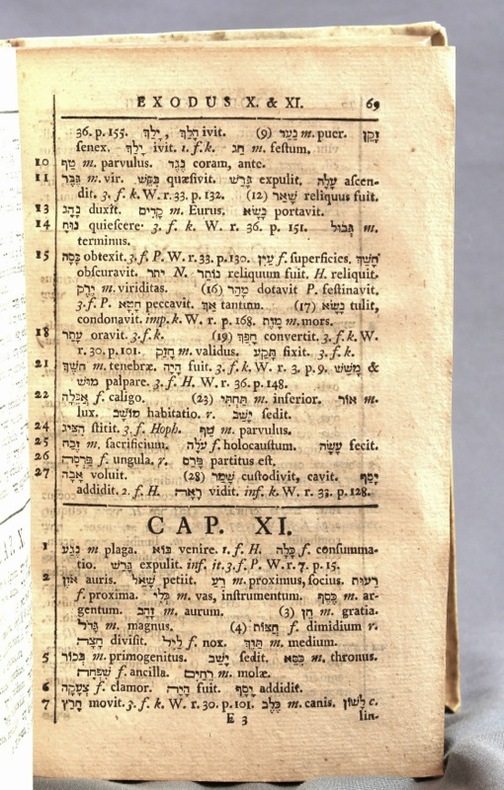 EXODUS X. & XI. 69
36. p. 155. יָלַךְ, הָלַךְ ivit. (9) נַעַר m. puer. זָקֵן
senex. יָלַךְ ivit. 1. f. k. חַג m. festum.
10 טַף m. parvulus. נֶגֶד coram, ante.
11 גֶּבֶר m. vir. בִּקֵּשׁ quæsivit. גֵּרַשׁ expulit. עָלָה ascen-
dit. 3. f. k. W. r. 33. p. 132. (12) שָׁאַר reliquus fuit.
13 נָהַג duxit. קָדִים m. Eurus. נָשָׂא portavit.
14 נוּחַ quiescere 3. f. k. W. r. 36. p. 151. גְּבוּל m.
terminus.
15 כָּסָה obtexit. 3. f. P. W. r. 33. p. 130. עַיִן f. superficies. חָשַׁךְ
obscuravit. יתר N. נוֹתַר reliquum fuit. H. reliquit.
יֶרֶק m. viriditas. (16) מָהַר dotavit P. festinavit.
3. f. P. חָטָא peccavit. אַךְ tantum. (17) נָשָׂא tulit,
condonavit. imp. k. W. r. p. 168. מָוֶת m. mors.
18 עָתַר oravit. 3. f. k. (19) הָפַךְ convertit. 3. f. k. W.
r. 30. p. 101. חָזָק m. validus. תָּקַע fixit. 3. f. k.
21 חֹשֶׁךְ m. tenebræ. הָיָה fuit. 3. f. k. W. r. 3. p. 9. מָשַׁשׁ &
מוּשׁ palpare. 3. f. H. W. r. 36. p. 148.
22 אֲפֵלָה f. caligo. (23) תַּחְתִּי m. inferior. אוֹר m.
lux. מוֹשָׁב habitatio. r. יָשַׁב sedit.
24 הִצִּיג stitit. 3. f. Hoph. טַף m. parvulus.
25 זֶבַח m. sacrificium. עֹלָה f. holocaustum. עָשָׂה fecit.
26 פַּרְסָה f. ungula. r. פָּרַס partitus est.
27 אָבָה voluit. (28) שָׁמַר custodivit, cavit. יָסַף
addidit. 2. f. H. רָאָה vidit. inf. k. W. r. 33. p. 128.
CAP. XI.
1 נֶגַע m plaga. בּוֹא venire. 1. f. H. כָּלָה f. consumma-
tio. גֵּרַשׁ expulit. inf. it. 3. f. P. W. r. 7. p. 15.
2 אֹזֶן auris. שָׁאַל petiit. רֵעַ m. proximus, socius. רְעוּת
f. proxima. כְּלִי m. vas, instrumentum. כֶּסֶף m. ar-
gentum. זָהָב m. aurum. (3) חֵן m. gratia.
גָּדוֹל m. magnus. (4) חֲצוֹת f. dimidium r.
חָצָה divisit. לַיִל f. nox. תָּוֶךְ m. medium.
5 בְּכוֹר m. primogenitus. יָשַׁב sedit. כִּסֵּא m. thronus.
שִׁפְחָה f. ancilla. רֵחַיִם m. molæ.
6 צְעָקָה f. clamor. הָיָה fuit. יָסַף addidit.
7 חָרַץ movit. 3. f. k. W. r. 30. p. 101. כֶּלֶב m. canis. לָשׁוֹן c.
E 3 lin-